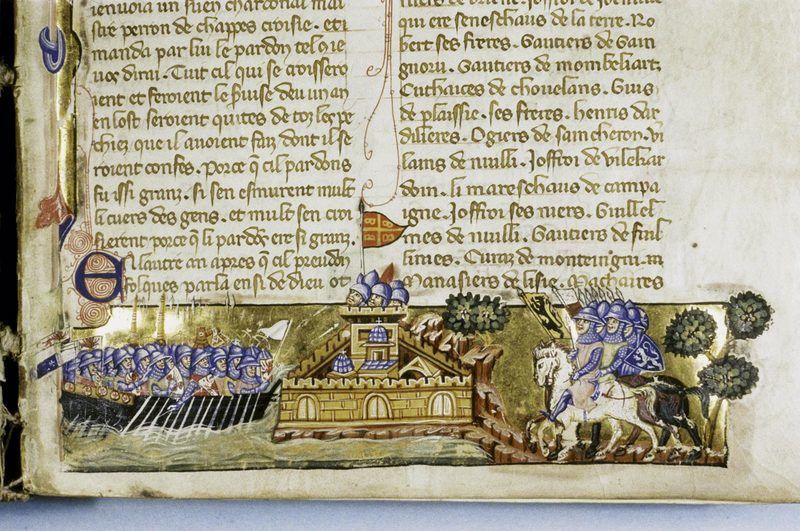 ienuoia un suen chardonal mai
stre perron de chappes croisie. et i
manda par lui le pardon tel que
vos dirai. Tuit cil qui se croissero
ient et feroient le seruise deu un an
en lost seroient quites de toz les pe
chiez que il auoient faiz dont il se
roient confes. Porce q cil pardons
fu issi granz. si sen esmurent mult
li cuers des genz. et mult sen croi
sierent porce q li pardoz ere si granz.
En lautre an apres q cil preudom
folques parla ensi de dieu ot
qui ere seneschaus de la terre. Ro
bert ses freres. Gautiers de Gain
gnoru. Gautiers de mombeliart
Euthaices de chouelans. Guis
de plaissie. ses freres. henris dar
dilleres. Ogiers de saincheron. Vi
lains de nuilli. Joffroi de vilehar
doin. li mareschaus de campa
igne. Joffroi ses niers. Guillel
mes de nuilli. Gautiers de fuil
limes. Euraz de monteingni.
Manasiers de lisle. Machaires